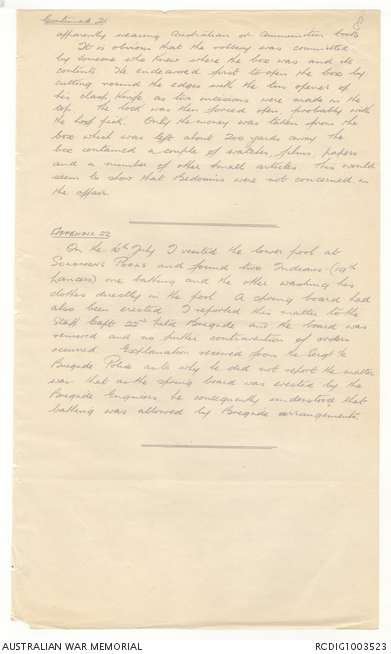 Continued 21
8
apparently wearing Australian or Ammunition boots
It is obvious that the robbery was committed
by someone who knew where the box was and its
contents. He endeavoured first to open the box by
cutting round the edges with the tin opener of
his clasp knife as two incisions were made in the
top. The lock was then forced open probably with
the hoof pick. Only the money was taken from the
box which was left about 200 yards away. The
box contained a couple of watches, films, papers
and a number of other small articles. This would
seem to show that Bedouins were not concerned in
the affair.
Appendix 22
On the 6th July I visited the lower pool at
Solomons Pools and found two Indians (19th
Lancers) one bathing and the other washing his
clothes directly in the pool. A diving board had
also been erected. I reported this matter to the
Staff Capt Field Brigade and the board was
removed and no further contravention of orders
occurred. Explanation received from the Sergt i/c
Brigade Police as to why he did not report the matter
was that as the spring board was erected by the
Brigade Engineers he consequently understood that
bathing was allowed by Brigade arrangements.
AUSTRALIAN WAR MEMORIAL
RCDIG1003523